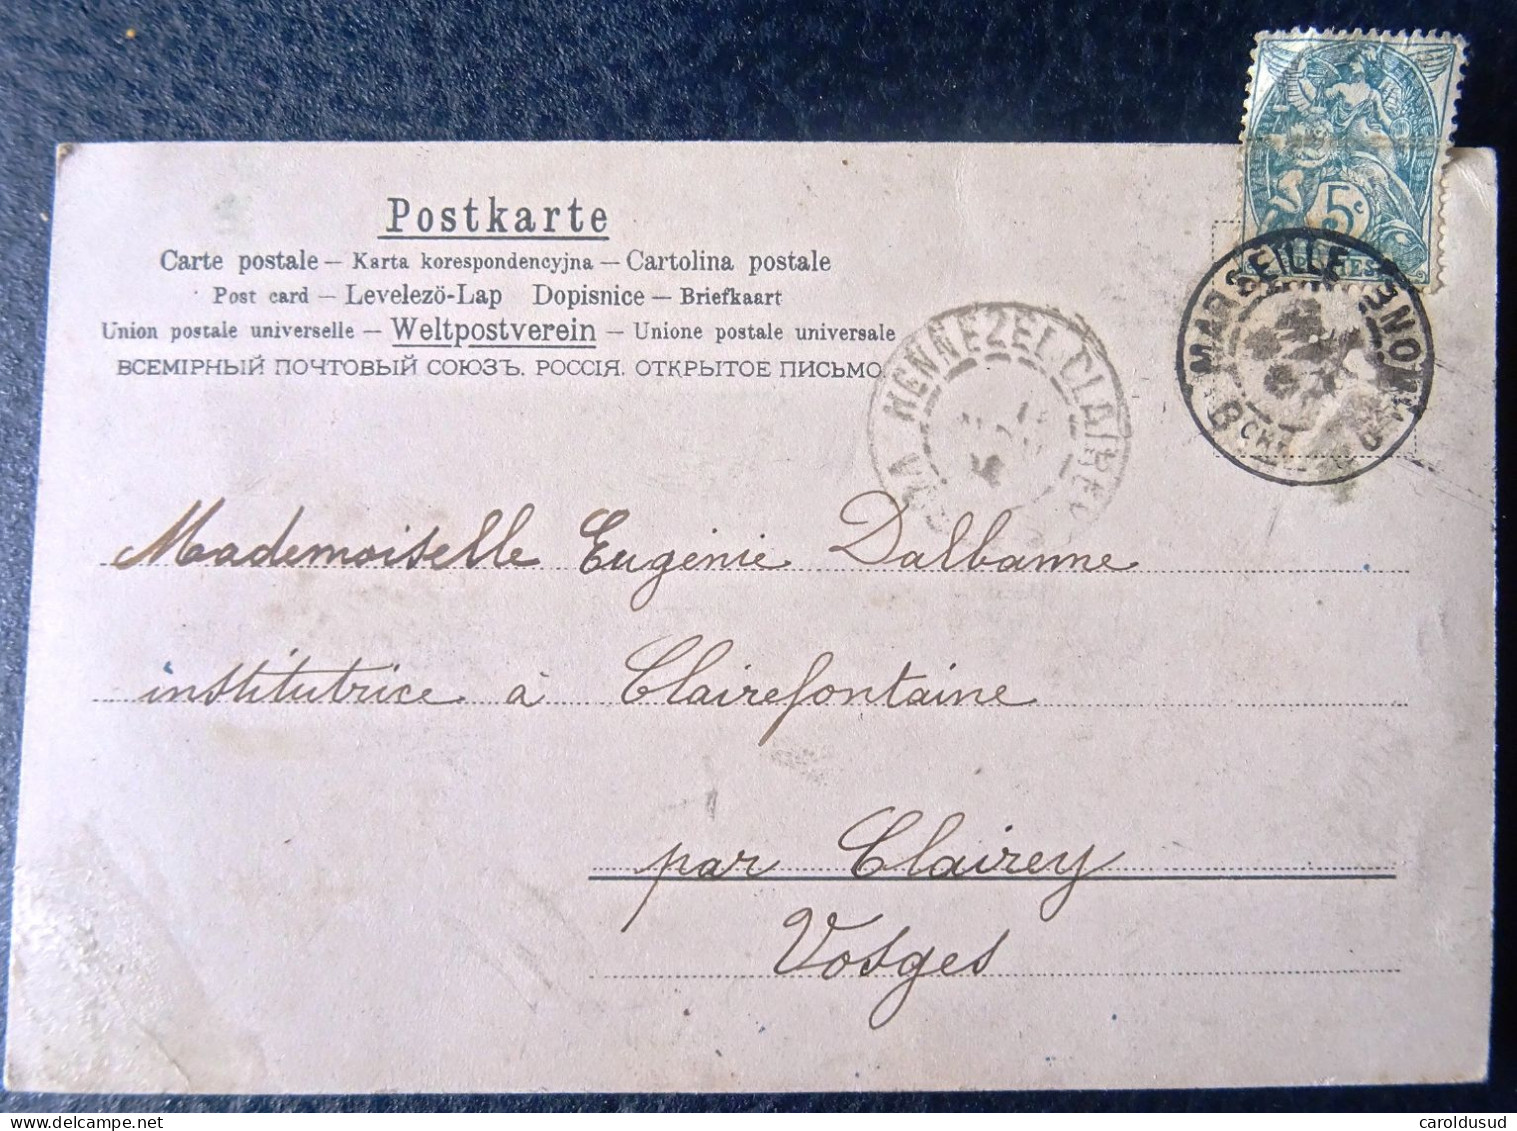 Postkarte
Carte postale – Karta korespondencyjna – Cartolina postale
Post card – Levelezö-Lap Dopisnice – Briefkaart
Union postale universelle – Weltpostverein – Unione postale universale
ВСЕМІРНЫЙ ПОЧТОВЫЙ СОЮЗЪ. РОССІЯ. ОТКРЫТОЕ ПИСЬМО
5c
MARSEILLE
Mademoiselle Eugénie Dalbanne
institutrice à Clairefontaine
par Clairey
Vosges
caroldusud